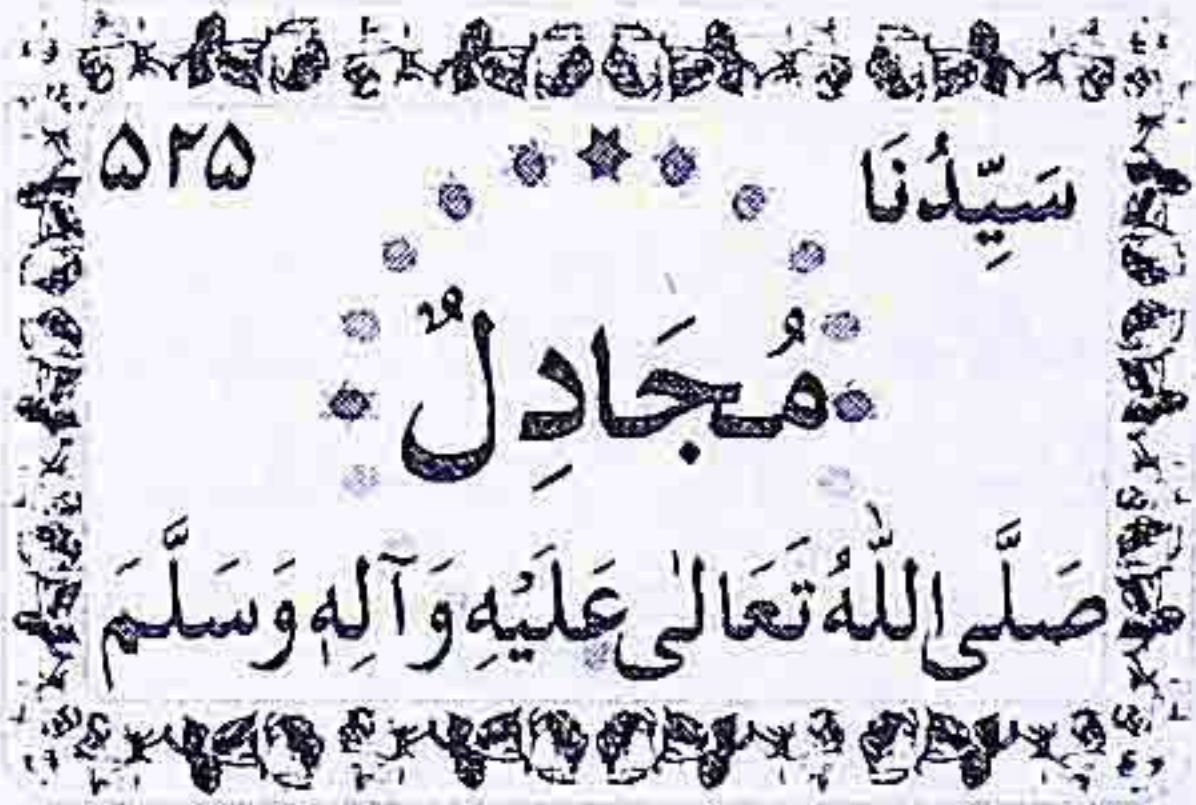 سَيِّدُنَا ۵۲۵
مُجَادِلٌ
صَلَّى اللّٰهُ تَعَالىٰ عَلَيْهِ وَآلِهٖ وَسَلَّمَ